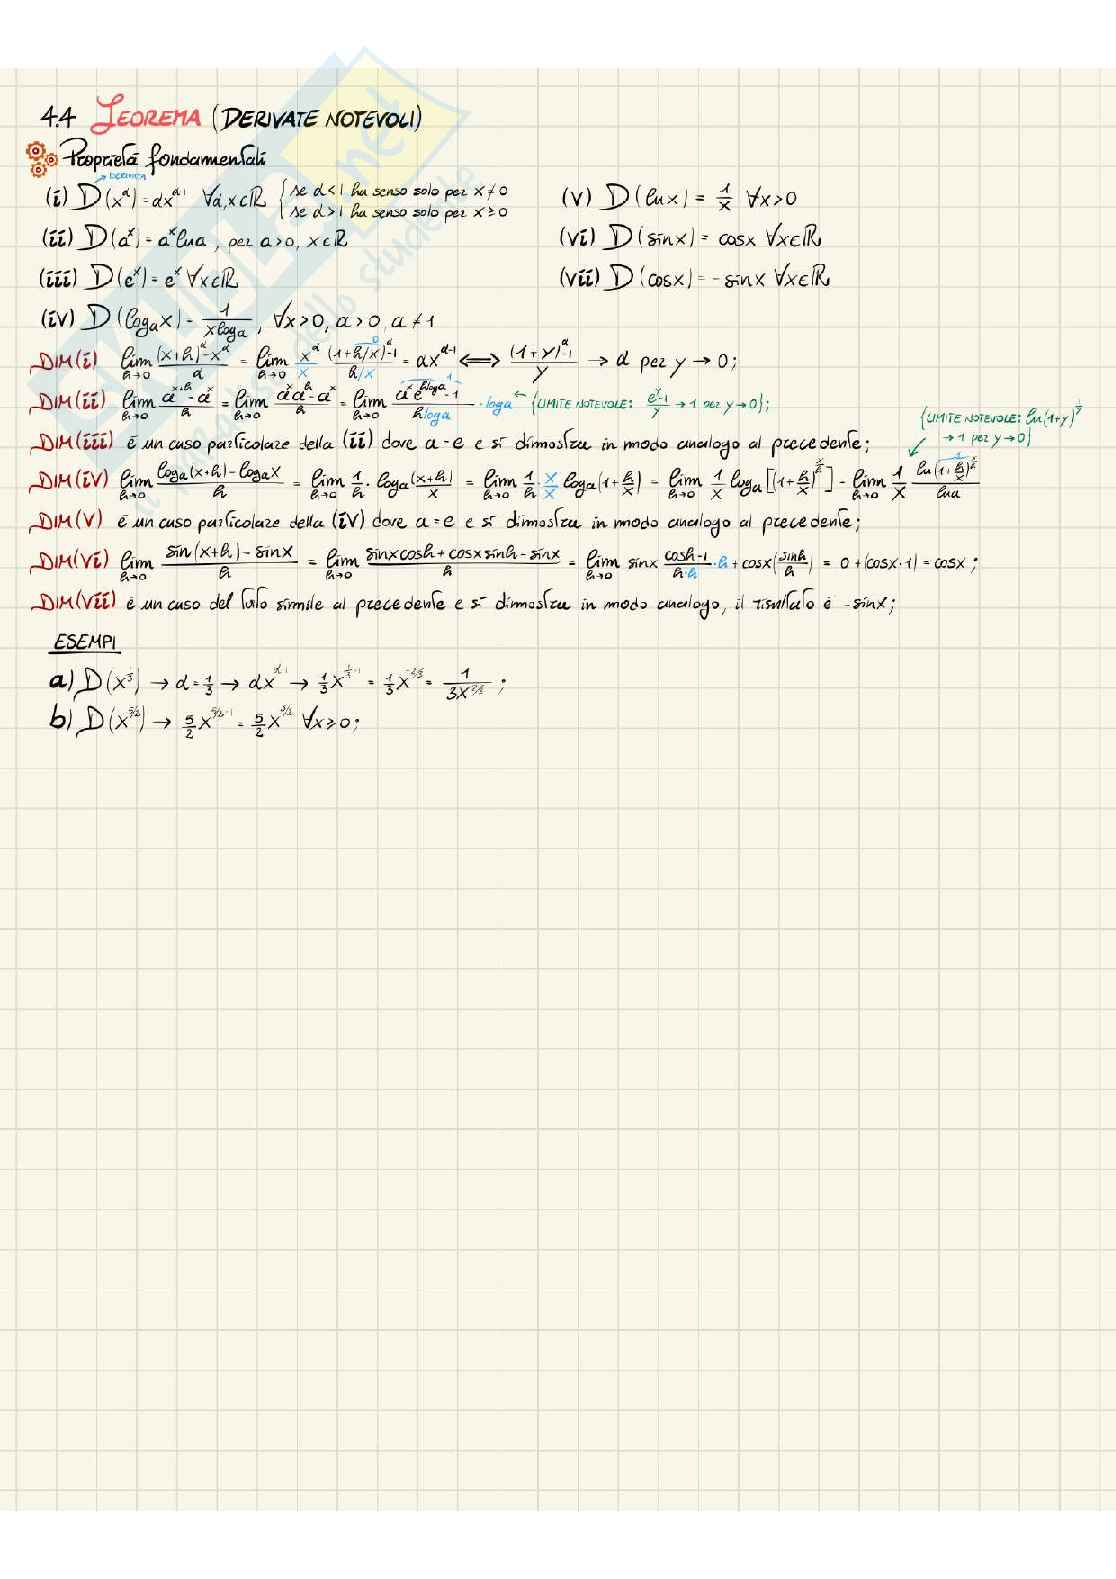 4.4 TEOREMA (DERIVATE NOTEVOLI)
Proprietà fondamentali
DERIVATA
(i) D(x^α) = αx^(α-1) ∀α,x∈ℝ { se α<1 ha senso solo per x≠0
se α>1 ha senso solo per x≥0
(ii) D(a^x) = a^x lna, per a>0, x∈ℝ
(iii) D(e^x) = e^x ∀x∈ℝ
(iv) D(log_a x) = 1/(x loga), ∀x>0, a>0, a≠1
(v) D(lnx) = 1/x ∀x>0
(vi) D(sinx) = cosx ∀x∈ℝ
(vii) D(cosx) = -sinx ∀x∈ℝ
DIM(i) lim h→0 ((x+h)^α - x^α)/a = lim h→0 x^α/x ((1+h/x)^α - 1)/(h/x) = αx^(α-1) ⟺ ((1+y)^α - 1)/y → α per y→0;
DIM(ii) lim h→0 (a^(x+h) - a^x)/h = lim h→0 (a^x a^h - a^x)/h = lim h→0 (a^x e^(hloga) - 1)/(hloga) · loga ← {LIMITE NOTEVOLE: (e^y-1)/y → 1 per y→0};
DIM(iii) è un caso particolare della (ii) dove a = e e si dimostra in modo analogo al precedente;
{LIMITE NOTEVOLE: ln(1+y)^(1/y)
→ 1 per y→0}
DIM(iv) lim h→0 (log_a(x+h) - log_a x)/h = lim h→0 1/h · log_a((x+h)/x) = lim h→0 1/h · x/x log_a(1+h/x) = lim h→0 1/x log_a[(1+h/x)^(x/h)] = lim h→0 1/x ln(1+h/x)^(x/h)/lna
DIM(v) è un caso particolare della (iv) dove a = e e si dimostra in modo analogo al precedente;
DIM(vi) lim h→0 (sin(x+h) - sinx)/h = lim h→0 (sinxcosh + cosxsinh - sinx)/h = lim h→0 sinx (cosh-1)/(h·h) ·h + cosx(sinh/h) = 0 + (cosx·1) = cosx;
DIM(vii) è un caso del tutto simile al precedente e si dimostra in modo analogo, il risultato è -sinx;
ESEMPI
a) D(x^(1/3)) → α = 1/3 → αx^(α-1) → 1/3 x^(1/3-1) = 1/3 x^(-2/3) = 1/(3x^(2/3));
b) D(x^(5/2)) → 5/2 x^(5/2-1) = 5/2 x^(3/2) ∀x≥0;